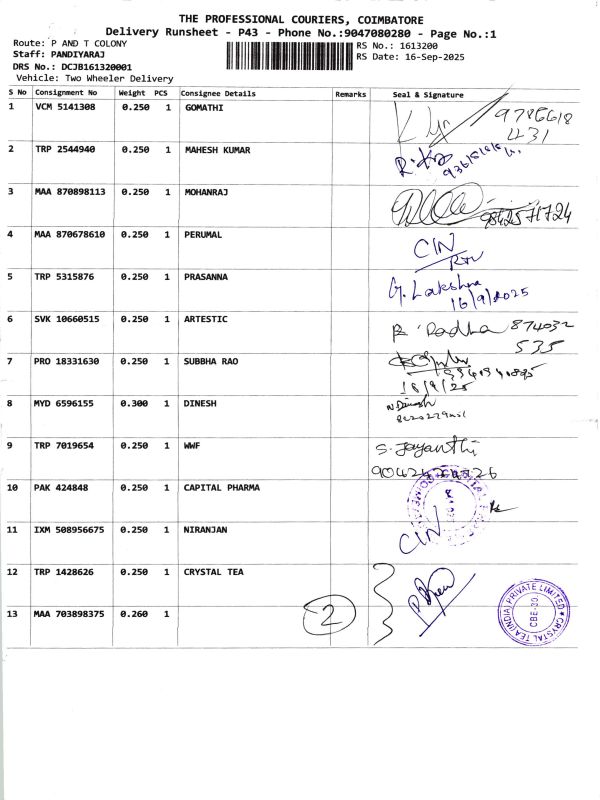 THE PROFESSIONAL COURIERS, COIMBATORE
Delivery Runsheet - P43 - Phone No.:9047080280 - Page No.:1
Route: P AND T COLONY
RS No.: 1613200
Staff: PANDIYARAJ
RS Date: 16-Sep-2025
DRS No.: DCJB161320001
Vehicle: Two Wheeler Delivery
S No Consignment No Weight PCS Consignee Details Remarks Seal & Signature
1 VCM 5141308 0.250 1 GOMATHI
2 TRP 2544940 0.250 1 MAHESH KUMAR
3 MAA 870898113 0.250 1 MOHANRAJ
9842571724
4 MAA 870678610 0.250 1 PERUMAL
CIN
5 TRP 5315876 0.250 1 PRASANNA
G. Lakshna
16/9/2025
6 SVK 10660515 0.250 1 ARTESTIC
R. Radha 874032
535
7 PRO 18331630 0.250 1 SUBBHA RAO
8 MYD 6596155 0.300 1 DINESH
N Dinesh
9 TRP 7019654 0.250 1 WWF
S. Jayanthi
10 PAK 424848 0.250 1 CAPITAL PHARMA
11 IXM 508956675 0.250 1 NIRANJAN
CIN
12 TRP 1428626 0.250 1 CRYSTAL TEA
13 MAA 703898375 0.260 1
2
CRYSTAL TEA (INDIA) PRIVATE LIMITED